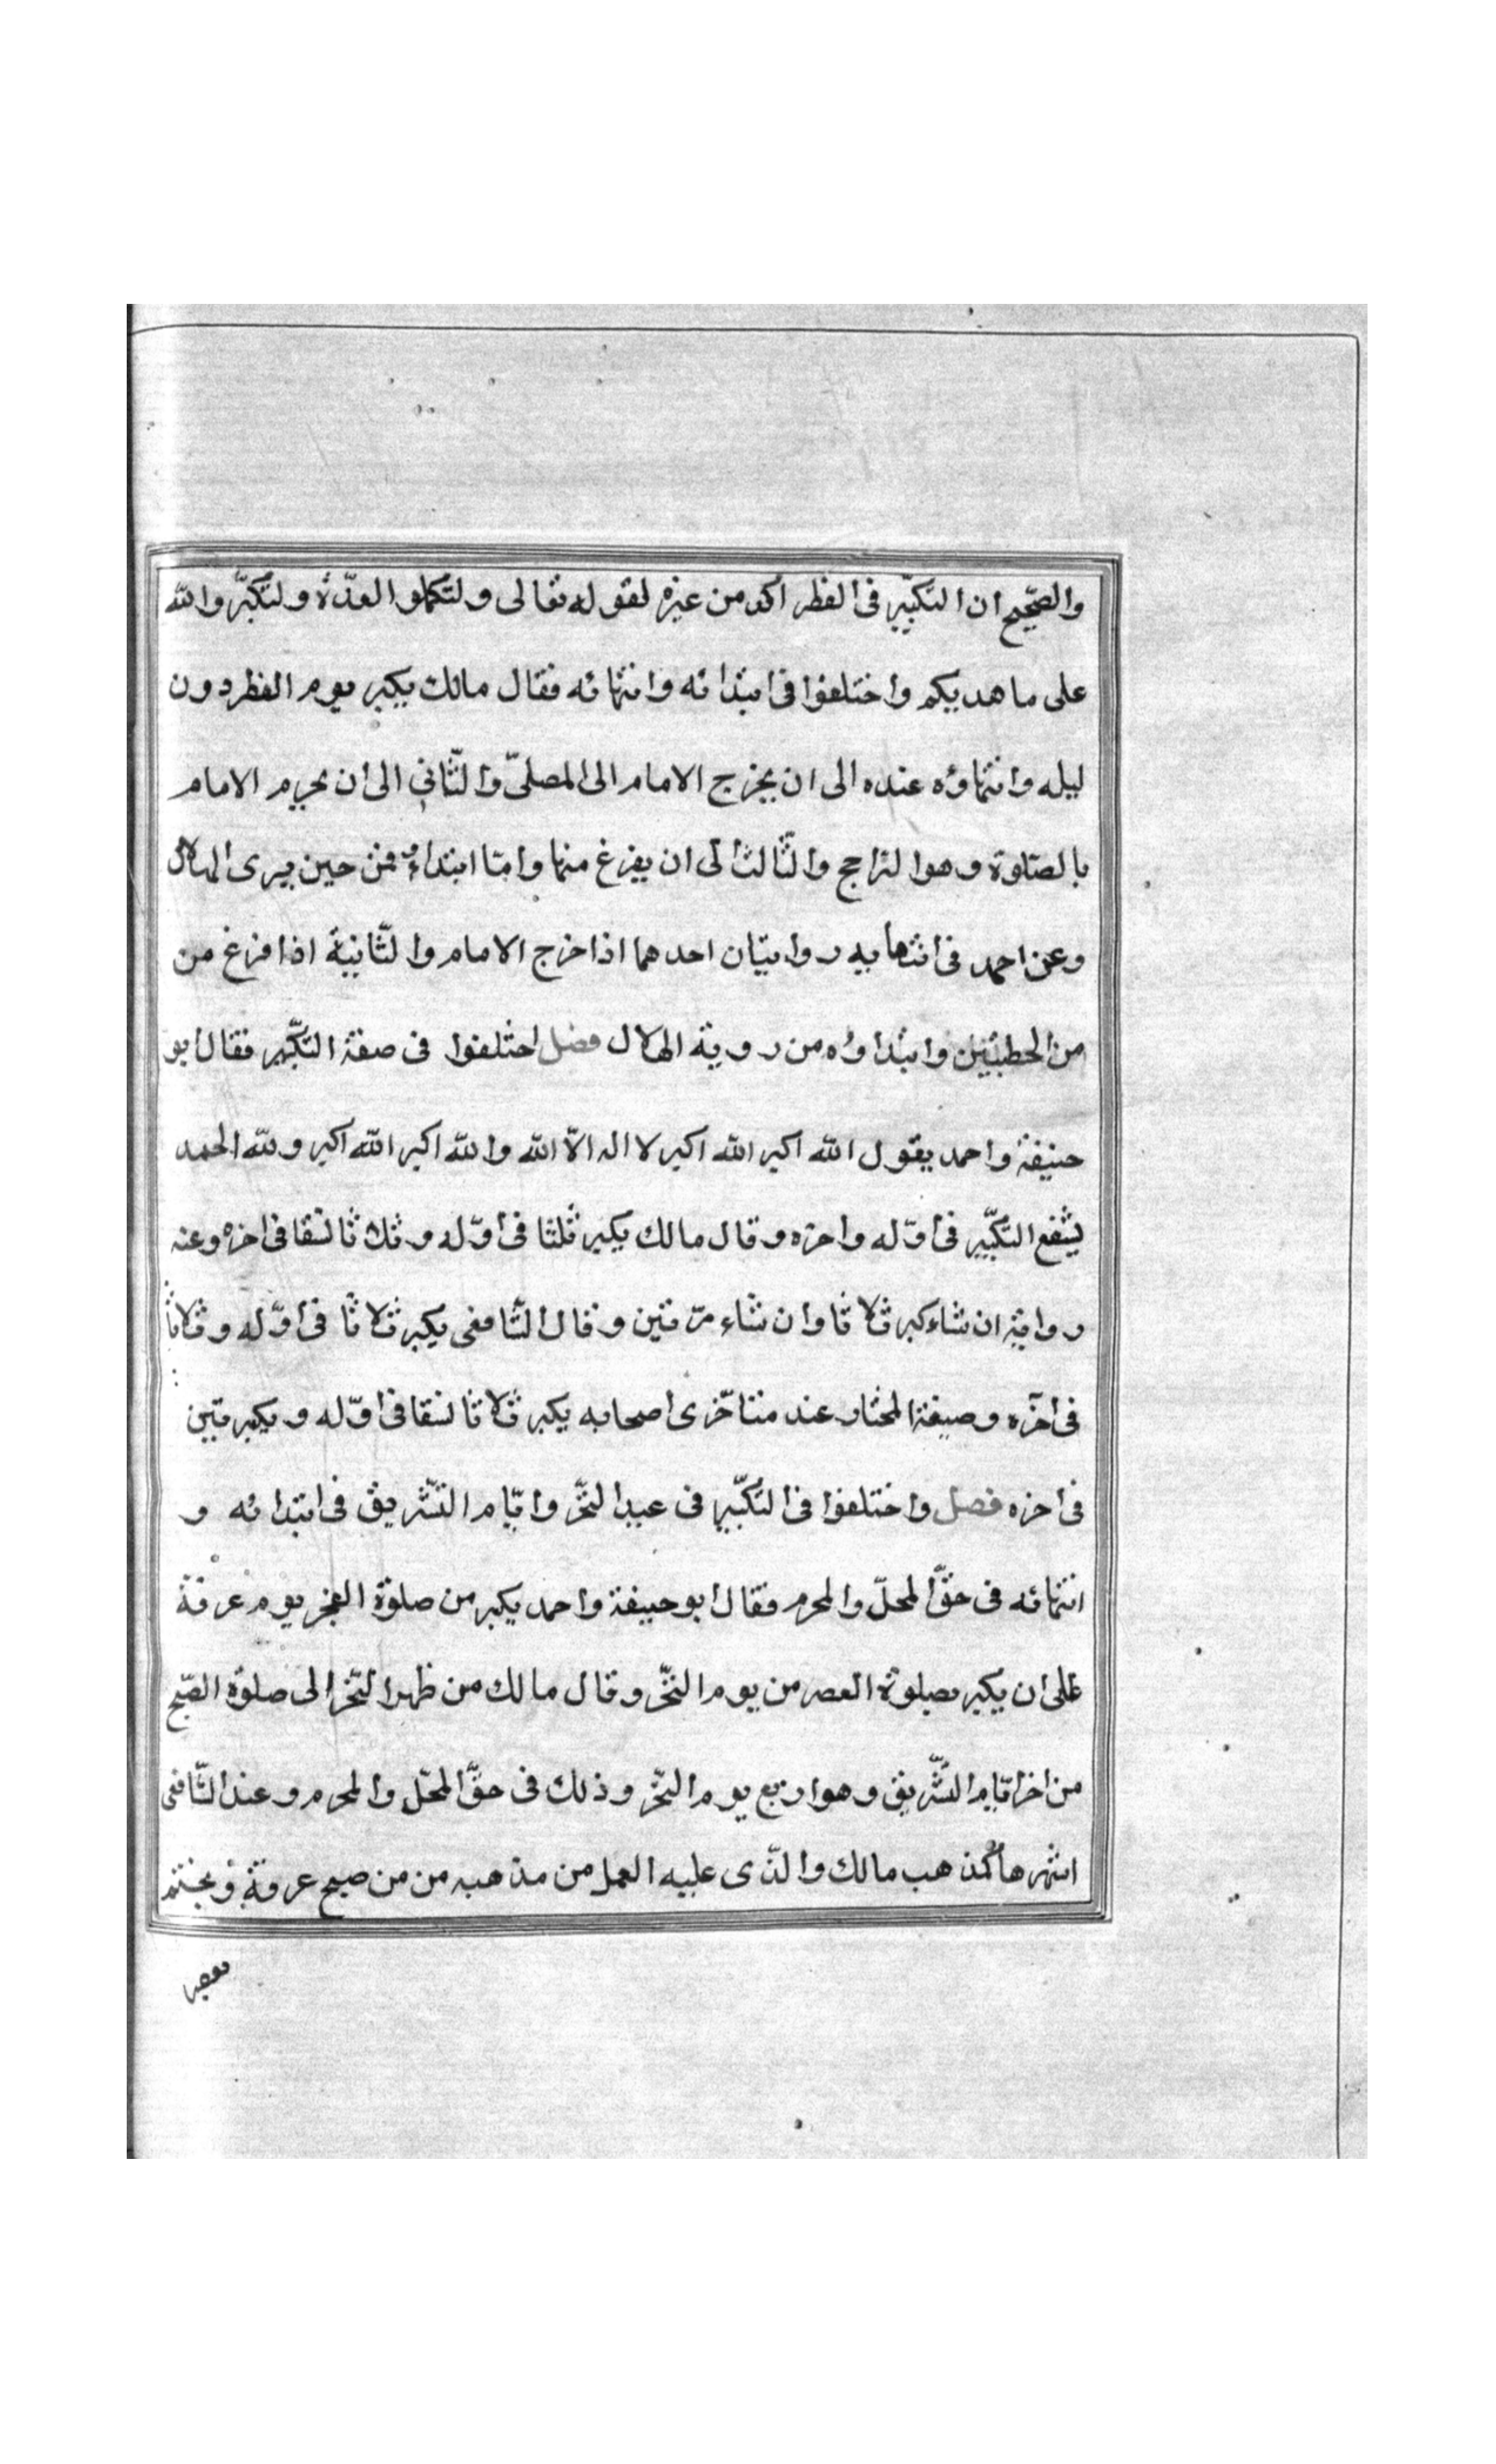 والصّحيح ان التكبّير فى الفطر اكد من غيره لقوله تعالى ولتكملوا العدّة ولتكبّروا الله
على ما هديكم واختلفوا فى ابتدائه وانتهائه فقال مالك يكبر يوم الفطر دون
ليله وانتهاؤه عنده الى ان يخرج الامام الى المصلىّ والثّاني الى ان يحريم الامام
بالصّلوة وهوا لراجح والثّالث الى ان يفرغ منها وامّا ابتداءه فمن حين يرى الهلال
وعن احمد فى انتهايه روايتان احدهما اذا خرج الامام والثّانية اذا فرغ من
من الخطبتين وابتداؤه من روية الهلال فصل اختلفوا فى صفة التكبّير فقال ابو
حنيفة واحمد يقول الله اكبر الله اكبر لا اله الاّ الله والله اكبر الله اكبر ولله الحمد
يشفع التكبّير فى اوّله واخره وقال مالك يكبر ثلثا فى اوّله وثلاثا نسقا فى اخره وعنه
رواية ان شاء كبر ثلاثا وان شاء مرّتين وقال الشّافعى يكبر ثلاثا فى اوّله وثلاثا
فى اخره وصيغة المختار عند متناخّرى اصحابه يكبر ثلاثا نسقا فى اوّله ويكبر تين
فى اخره فصل واختلفوا فى التكبّير فى عيد النحّر وايّام التّشريق فى ابتدائه و
انتهائه فى حقّ المحلّ والمحرم فقال ابو حنيفة واحمد يكبر من صلوة الفجر يوم عرفة
على ان يكبر بصلوة العصر من يوم النحّر وقال مالك من ظهر النحّر الى صلوة الصّبح
من اخر ايّام التّشريق وهو اربع يوم النحّر وذلك فى حقّ المحّل والمحرم وعند الشّافعى
اشهرها كمذهب مالك والذّى عليه العمل من مذهبه من من صبح عرفة ويختم
بعصر